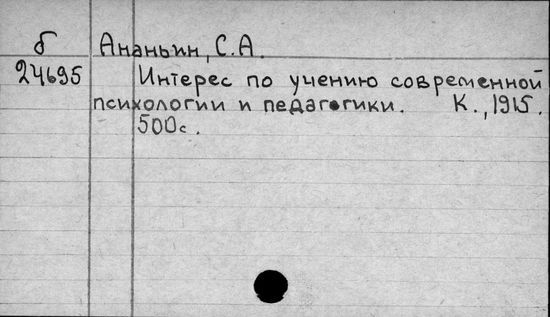 б Ананьин, С.А.
24695 Интерес по учению современной
психологии и педагогики. К., 1915.
500с.